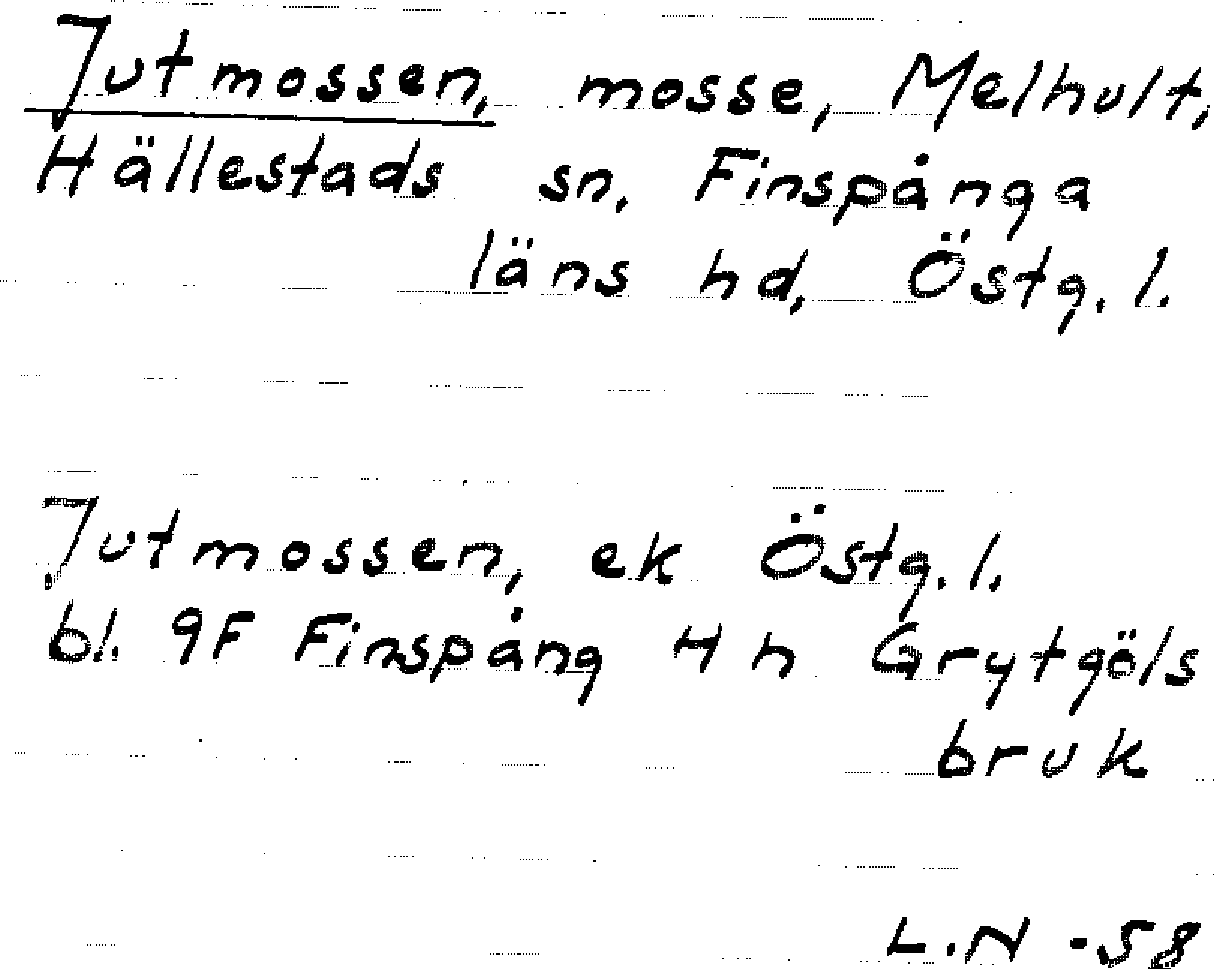 Jutmossen, mosse, Melhult,
Hällestads sn. Finspånga
läns hd, Östg. l.
Jutmossen, ek Östg. l.
bl. 9F Finspång 4 h Grytgöls
bruk
L.N -58